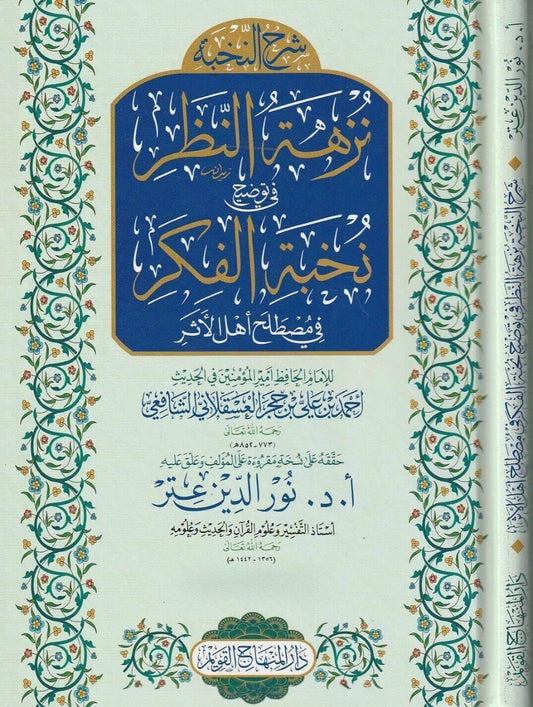 شرح النخبة
نزهة النظر
في توضيح
نخبة الفكر
في مصطلح أهل الأثر
للإمام الحافظ أمير المؤمنين في الحديث
أحمد بن علي بن حجر العسقلاني الشافعي
رحمه الله تعالى
(٧٧٣-٨٥٢هـ)
حققه على نسخة مقروءة على المؤلف وعلق عليه
أ. د. نور الدين عتر
أستاذ التفسير وعلوم القرآن والحديث وعلومه
رحمه الله تعالى
(١٣٥٦ - ١٤٤٢ هـ)
دار المنهاج القويم
أ. د. نور الدين عتر
شرح النخبة نزهة النظر في توضيح نخبة الفكر في مصطلح أهل الأثر
دار المنهاج القويم